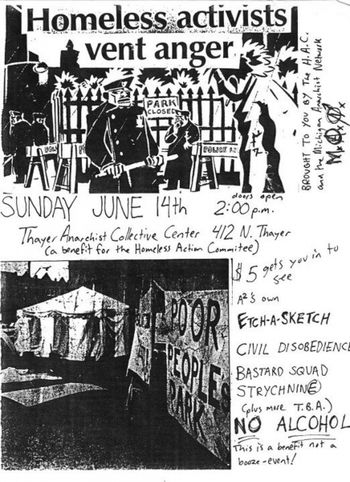 Homeless activists
vent anger
PARK
CLOSED
POLICE
BROUGHT TO YOU BY THE H.A.C.
and the Michigan Anarchist Network
SUNDAY JUNE 14th
doors open
2:00 p.m.
Thayer Anarchist Collective Center 412 N. Thayer
(a benefit for the Homeless Action Commitee)
$5 gets you in to
see
A²'s own
ETCH-A-SKETCH
CIVIL DISOBEDIENCE
BASTARD SQUAD
STRYCHNINE
(plus more T.B.A.)
NO ALCOHOL
This is a benefit not a
booze-event!
POOR
PEOPLES
PARK